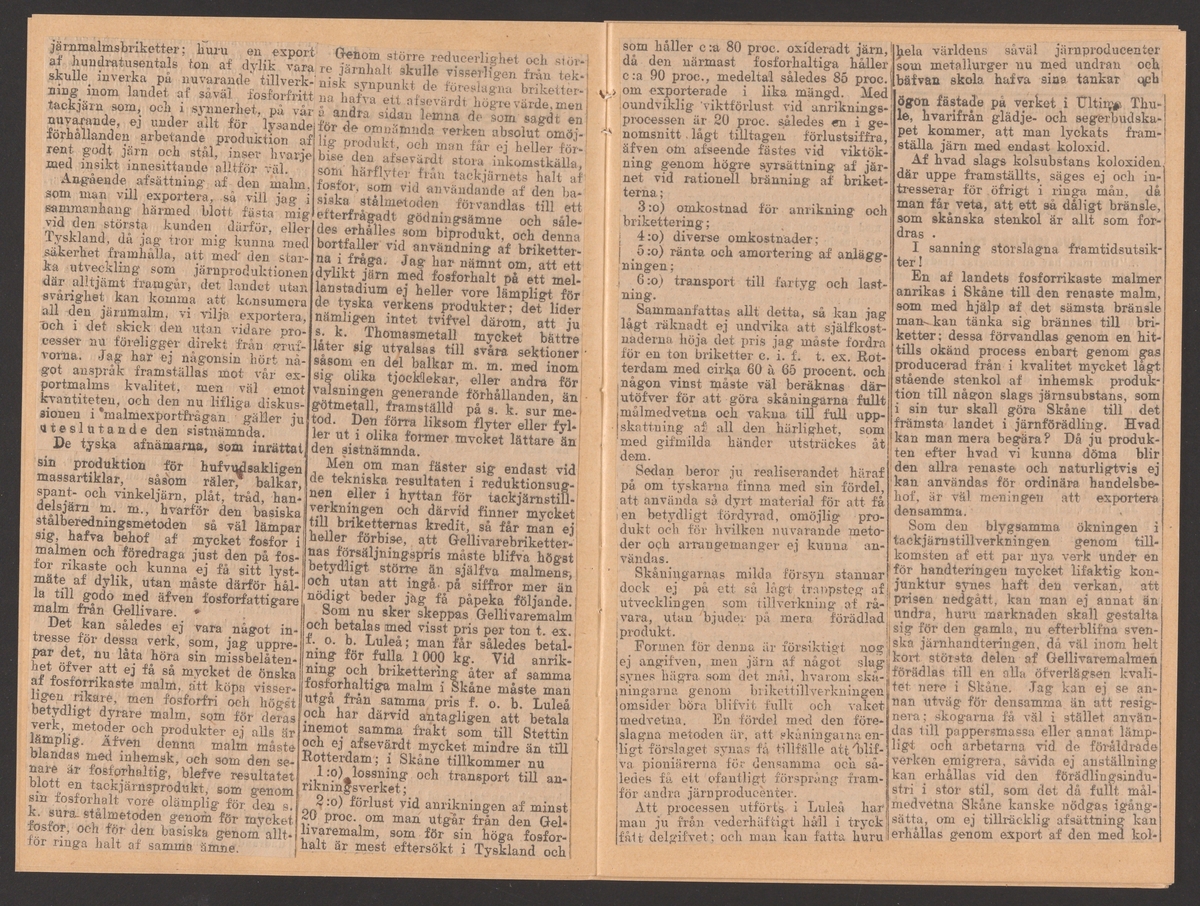 järnmalmsbriketter; huru en export
af hundratusentals ton af dylik vara
skulle inverka på nuvarande tillverk-
ning inom landet af såväl fosforfritt
tackjärn som, och i synnerhet, på vår
nuvarande, ej under allt för lysande
förhållanden arbetande produktion af
rent godt järn och stål, inser hvarje
med insikt innesittande alltför väl.
Angående afsättning af den malm,
som man vill exportera, så vill jag i
sammanhang härmed blott fästa mig
vid den största kunden därför, eller
Tyskland, då jag tror mig kunna med
säkerhet framhålla, att med den star-
ka utveckling som järnproduktionen
där alltjämt framgår, det landet utan
svårighet kan komma att konsumera
all den järnmalm, vi vilja exportera,
och i det skick den utan vidare pro-
cesser nu föreligger direkt från gruf-
vorna. Jag har ej någonsin hört nå-
got anspråk framställas mot vår ex-
portmalms kvalitet, men väl emot
kvantiteten, och den nu lifliga diskus-
sionen i malmexportfrågan gäller ju
uteslutande den sistnämnda.
De tyska afnämarna, som inrättat
sin produktion för hufvudsakligen
massartiklar, såsom räler, balkar,
spant- och vinkeljärn, plåt, tråd, han-
delsjärn m. m., hvarför den basiska
stålberedningsmetoden så väl lämpar
sig, hafva behof af mycket fosfor i
malmen och föredraga just den på fos-
for rikaste och kunna ej få sitt lyst-
mäte af dylik, utan måste därför hål-
la till godo med äfven fosforfattigare
malm från Gellivare.
Det kan således ej vara något in-
tresse för dessa verk, som, jag uppre-
par det, nu låta höra sin missbelåten-
het öfver att ej få så mycket de önska
af fosforrikaste malm, att köpa visser-
ligen rikare, men fosforfri och högst
betydligt dyrare malm, som för deras
verk, metoder och produkter ej alls är
lämplig. Äfven denna malm måste
blandas med inhemsk, och som den se-
nare är fosforhaltig, blefve resultatet
blott en tackjärnsprodukt, som genom
sin fosforhalt vore olämplig för den s.
k. sura stålmetoden genom för mycket
fosfor, och för den basiska genom allt-
för ringa halt af samma ämne.
Genom större reducerlighet och stör-
re järnhalt skulle visserligen från tek-
nisk synpunkt de föreslagna briketter-
na hafva ett afsevärdt högre värde, men
å andra sidan lemna de som sagdt en
för de omnämnda verken absolut omöj-
lig produkt, och man får ej heller för-
bise den afsevärdt stora inkomstkälla,
som härflyter från tackjärnets halt af
fosfor, som vid användande af den ba-
siska stålmetoden förvandlas till ett
efterfrågadt gödningsämne och såle-
des erhålles som biprodukt, och denna
bortfaller vid användning af briketter-
na i fråga. Jag har nämnt om, att ett
dylikt järn med fosforhalt på ett mel-
lanstadium ej heller vore lämpligt för
de tyska verkens produkter; det lider
nämligen intet tvifvel därom, att ju
s. k. Thomasmetall mycket bättre
låter sig utvalsas till svåra sektioner
såsom en del balkar m. m. med inom
sig olika tjocklekar, eller andra för
valsningen generande förhållanden, än
götmetall, framställd på s. k. sur me-
tod. Den förra liksom flyter eller fyl-
ler ut i olika former mycket lättare än
den sistnämnda.
Men om man fäster sig endast vid
de tekniska resultaten i reduktionsug-
nen eller i hyttan för tackjärnstill-
verkningen och därvid finner mycket
till briketternas kredit, så får man ej
heller förbise, att Gellivarebriketter-
nas försäljningspris måste blifva högst
betydligt större än själfva malmens,
och utan att ingå på siffror mer än
nödigt beder jag få påpeka följande.
Som nu sker skeppas Gellivaremalm
och betalas med visst pris per ton t. ex.
f. o. b. Luleå; man får således betal-
ning för fulla 1000 kg. Vid anrik-
ning och brikettering åter af samma
fosforhaltiga malm i Skåne måste man
utgå från samma pris f. o. b. Luleå
och har därvid antagligen att betala
inemot samma frakt som till Stettin
och ej afsevärdt mycket mindre än till
Rotterdam; i Skåne tillkommer nu
1:o) lossning och transport till an-
rikningsverket;
2:o) förlust vid anrikningen af minst
20 proc. om man utgår från den Gel-
livaremalm, som för sin höga fosfor-
halt är mest eftersökt i Tyskland och
som håller c:a 80 proc. oxideradt järn,
då den närmast fosforhaltiga håller
c:a 90 proc., medeltal således 85 proc.
om exporterade i lika mängd. Med
oundviklig viktförlust vid anriknings-
processen är 20 proc. således en i ge-
nomsnitt lågt tilltagen förlustsiffra,
äfven om afseende fästes vid viktök-
ning genom högre syrsättning af jär-
net vid rationell bränning af briket-
terna;
3:o) omkostnad för anrikning och
brikettering;
4:o) diverse omkostnader;
5:o) ränta och amortering af anlägg-
ningen;
6:o) transport till fartyg och last-
ning.
Sammanfattas allt detta, så kan jag
lågt räknadt ej undvika att själfkost-
naderna höja det pris jag måste fordra
för en ton briketter c. i. f. t. ex. Rot-
terdam med cirka 60 à 65 procent. och
någon vinst måste väl beräknas där-
utöfver för att göra skåningarna fullt
målmedvetna och vakna till full upp-
skattning af all den härlighet, som
med gifmilda händer utsträckes åt
dem.
Sedan beror ju realiserandet häraf
på om tyskarna finna med sin fördel,
att använda så dyrt material för att få
en betydligt fördyrad, omöjlig pro-
dukt och för hvilken nuvarande meto-
der och arrangemanger ej kunna an-
vändas.
Skåningarnas milda försyn stannar
dock ej på ett så lågt trappsteg af
utvecklingen som tillverkning af rå-
vara, utan bjuder på mera förädlad
produkt.
Formen för denna är försiktigt nog
ej angifven, men järn af något slag
synes hägra som det mål, hvarom skå-
ningarna genom brikettillverkningen
omsider böra blifvit fullt och vaket
medvetna. En fördel med den före-
slagna metoden är, att skåningarna en-
ligt förslaget synas få tillfälle att blif-
va pioniärerna för densamma och så-
ledes få ett ofantligt försprång fram-
för andra järnproducenter.
Att processen utförts i Luleå har
man ju från vederhäftigt håll i tryck
fått delgifvet; och man kan fatta huru
hela världens såväl järnproducenter
som metallurger nu med undran och
bäfvan skola hafva sina tankar och
ögon fästade på verket i Ultima Thu-
le, hvarifrån glädje- och segerbudska-
pet kommer, att man lyckats fram-
ställa järn med endast koloxid.
Af hvad slags kolsubstans koloxiden
där uppe framställts, säges ej och in-
tresserar för öfrigt i ringa mån, då
man får veta, att ett så dåligt bränsle,
som skånska stenkol är allt som for-
dras.
I sanning storslagna framtidsutsik-
ter!
En af landets fosforrikaste malmer
anrikas i Skåne till den renaste malm,
som med hjälp af det sämsta bränsle
man kan tänka sig brännes till bri-
ketter; dessa förvandlas genom en hit-
tills okänd process enbart genom gas
producerad från i kvalitet mycket lågt
stående stenkol af inhemsk produk-
tion till någon slags järnsubstans, som
i sin tur skall göra Skåne till det
främsta landet i järnförädling. Hvad
kan man mera begära? Då ju produk-
ten efter hvad vi kunna döma blir
den allra renaste och naturligtvis ej
kan användas för ordinära handelsbe-
hof, är väl meningen att exportera
densamma.
Som den blygsamma ökningen i
tackjärnstillverkningen genom till-
komsten af ett par nya verk under en
för handteringen mycket lifaktig kon-
junktur synes haft den verkan, att
prisen nedgått, kan man ej annat än
undra, huru marknaden skall gestalta
sig för den gamla, nu efterblifna sven-
ska järnhandteringen, då väl inom helt
kort största delen af Gellivaremalmen
förädlas till en alla öfverlägsen kvali-
tet nere i Skåne. Jag kan ej se an-
nan utväg för densamma än att resig-
nera; skogarna få väl i stället använ-
das till pappersmassa eller annat lämp-
ligt och arbetarna vid de föråldrade
verken emigrera, såvida ej anställning
kan erhållas vid den förädlingsindu-
stri i stor stil, som det då fullt mål-
medvetna Skåne kanske nödgas igång-
sätta, om ej tillräcklig afsättning kan
erhållas genom export af den med kol-